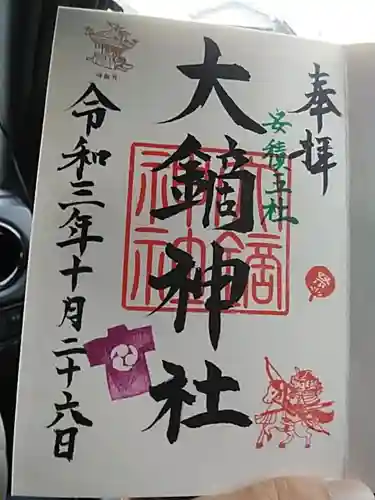 奉拝
安積五社
大鏑神社
令和三年十月二十六日